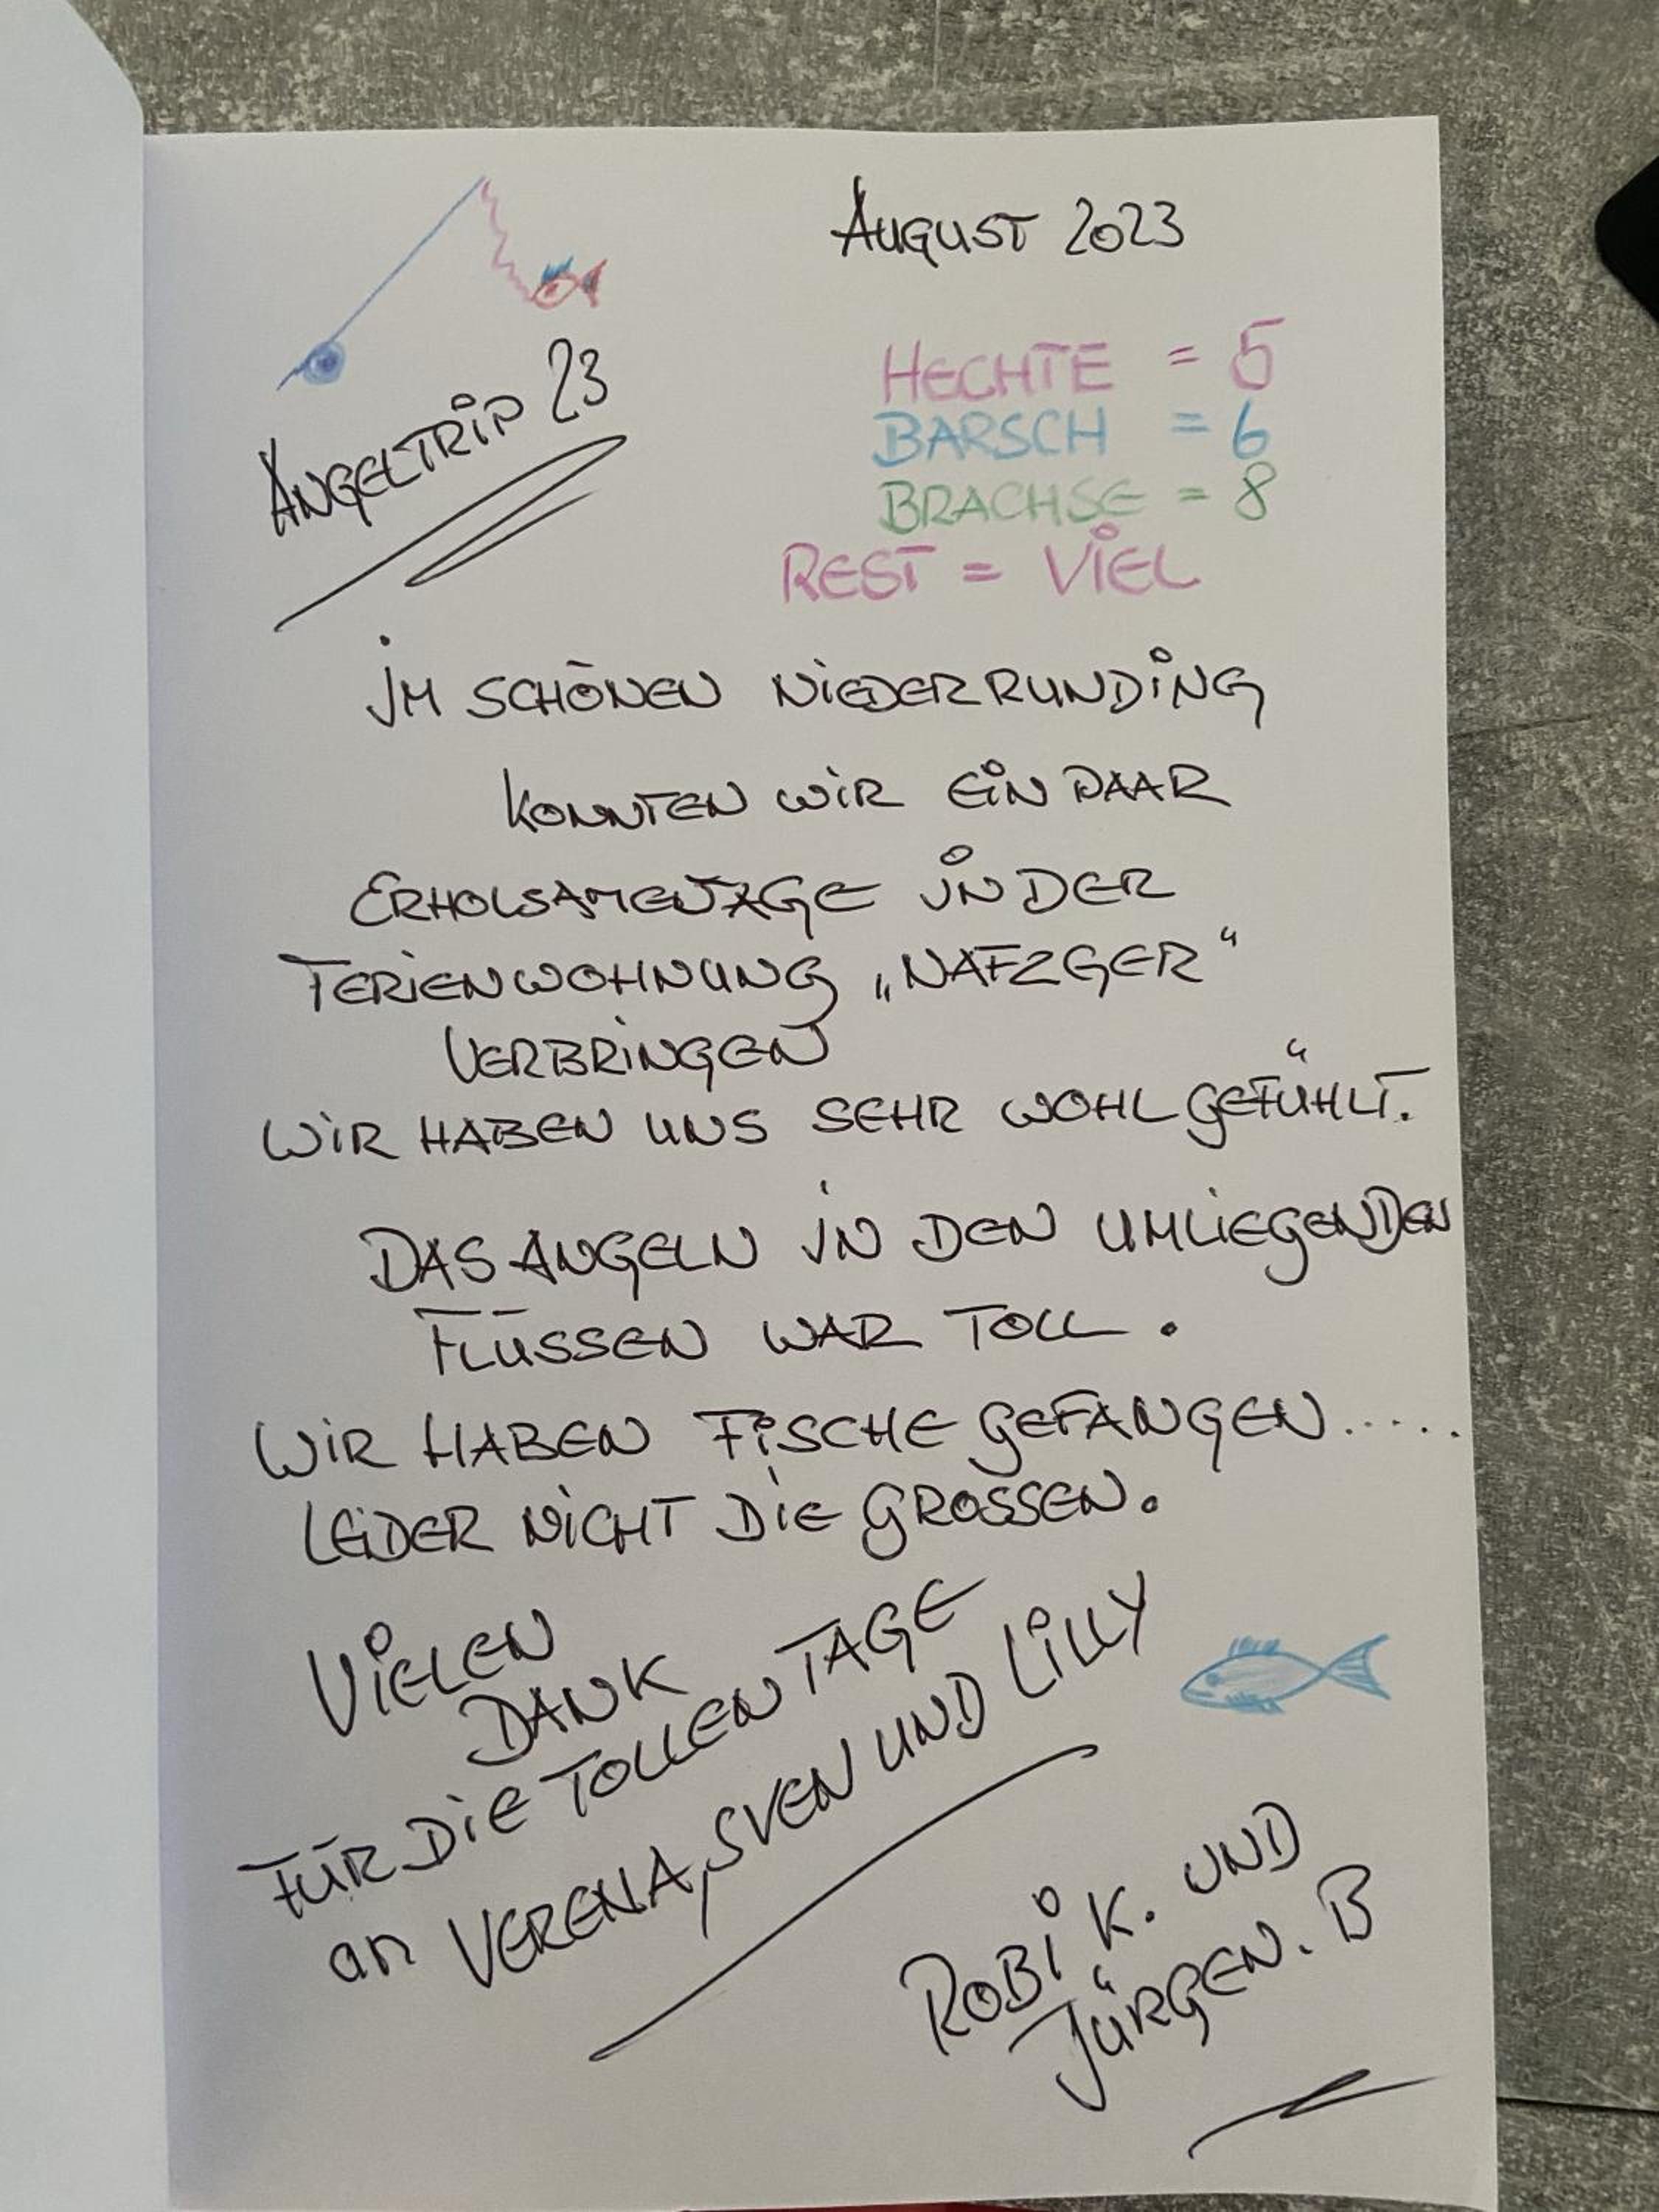 AUGUST 2023
ANGELTRIP 23
HECHTE = 5
BARSCH = 6
BRACHSE = 8
REST = VIEL
IM SCHÖNEN NIEDERRUNDING
KONNTEN WIR EIN PAAR
ERHOLSAME TAGE IN DER
FERIENWOHNUNG „NAFZGER“
VERBRINGEN
WIR HABEN UNS SEHR WOHL GEFÜHLT.
DAS ANGELN IN DEN UMLIEGENDEN
FLÜSSEN WAR TOLL.
WIR HABEN FISCHE GEFANGEN.....
LEIDER NICHT DIE GROSSEN.
VIELEN
DANK
FÜR DIE TOLLEN TAGE
an VERENA, SVEN UND LILLY
ROBI K. UND
JÜRGEN. B